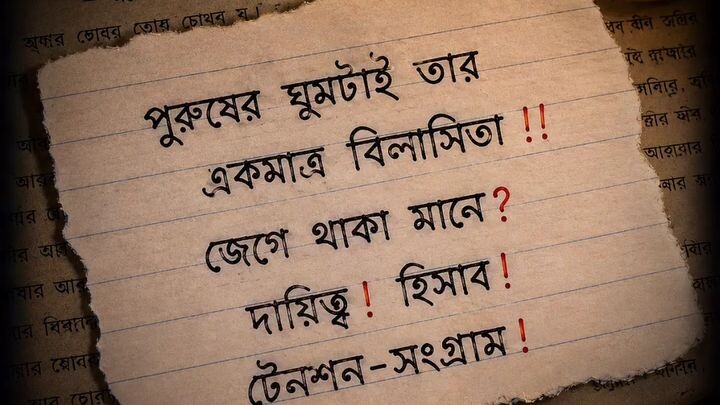 পুরুষের ঘুমটাই তার
একমাত্র বিলাসিতা !!
জেগে থাকা মানে?
দায়িত্ব! হিসাব!
টেনশন-সংগ্রাম!